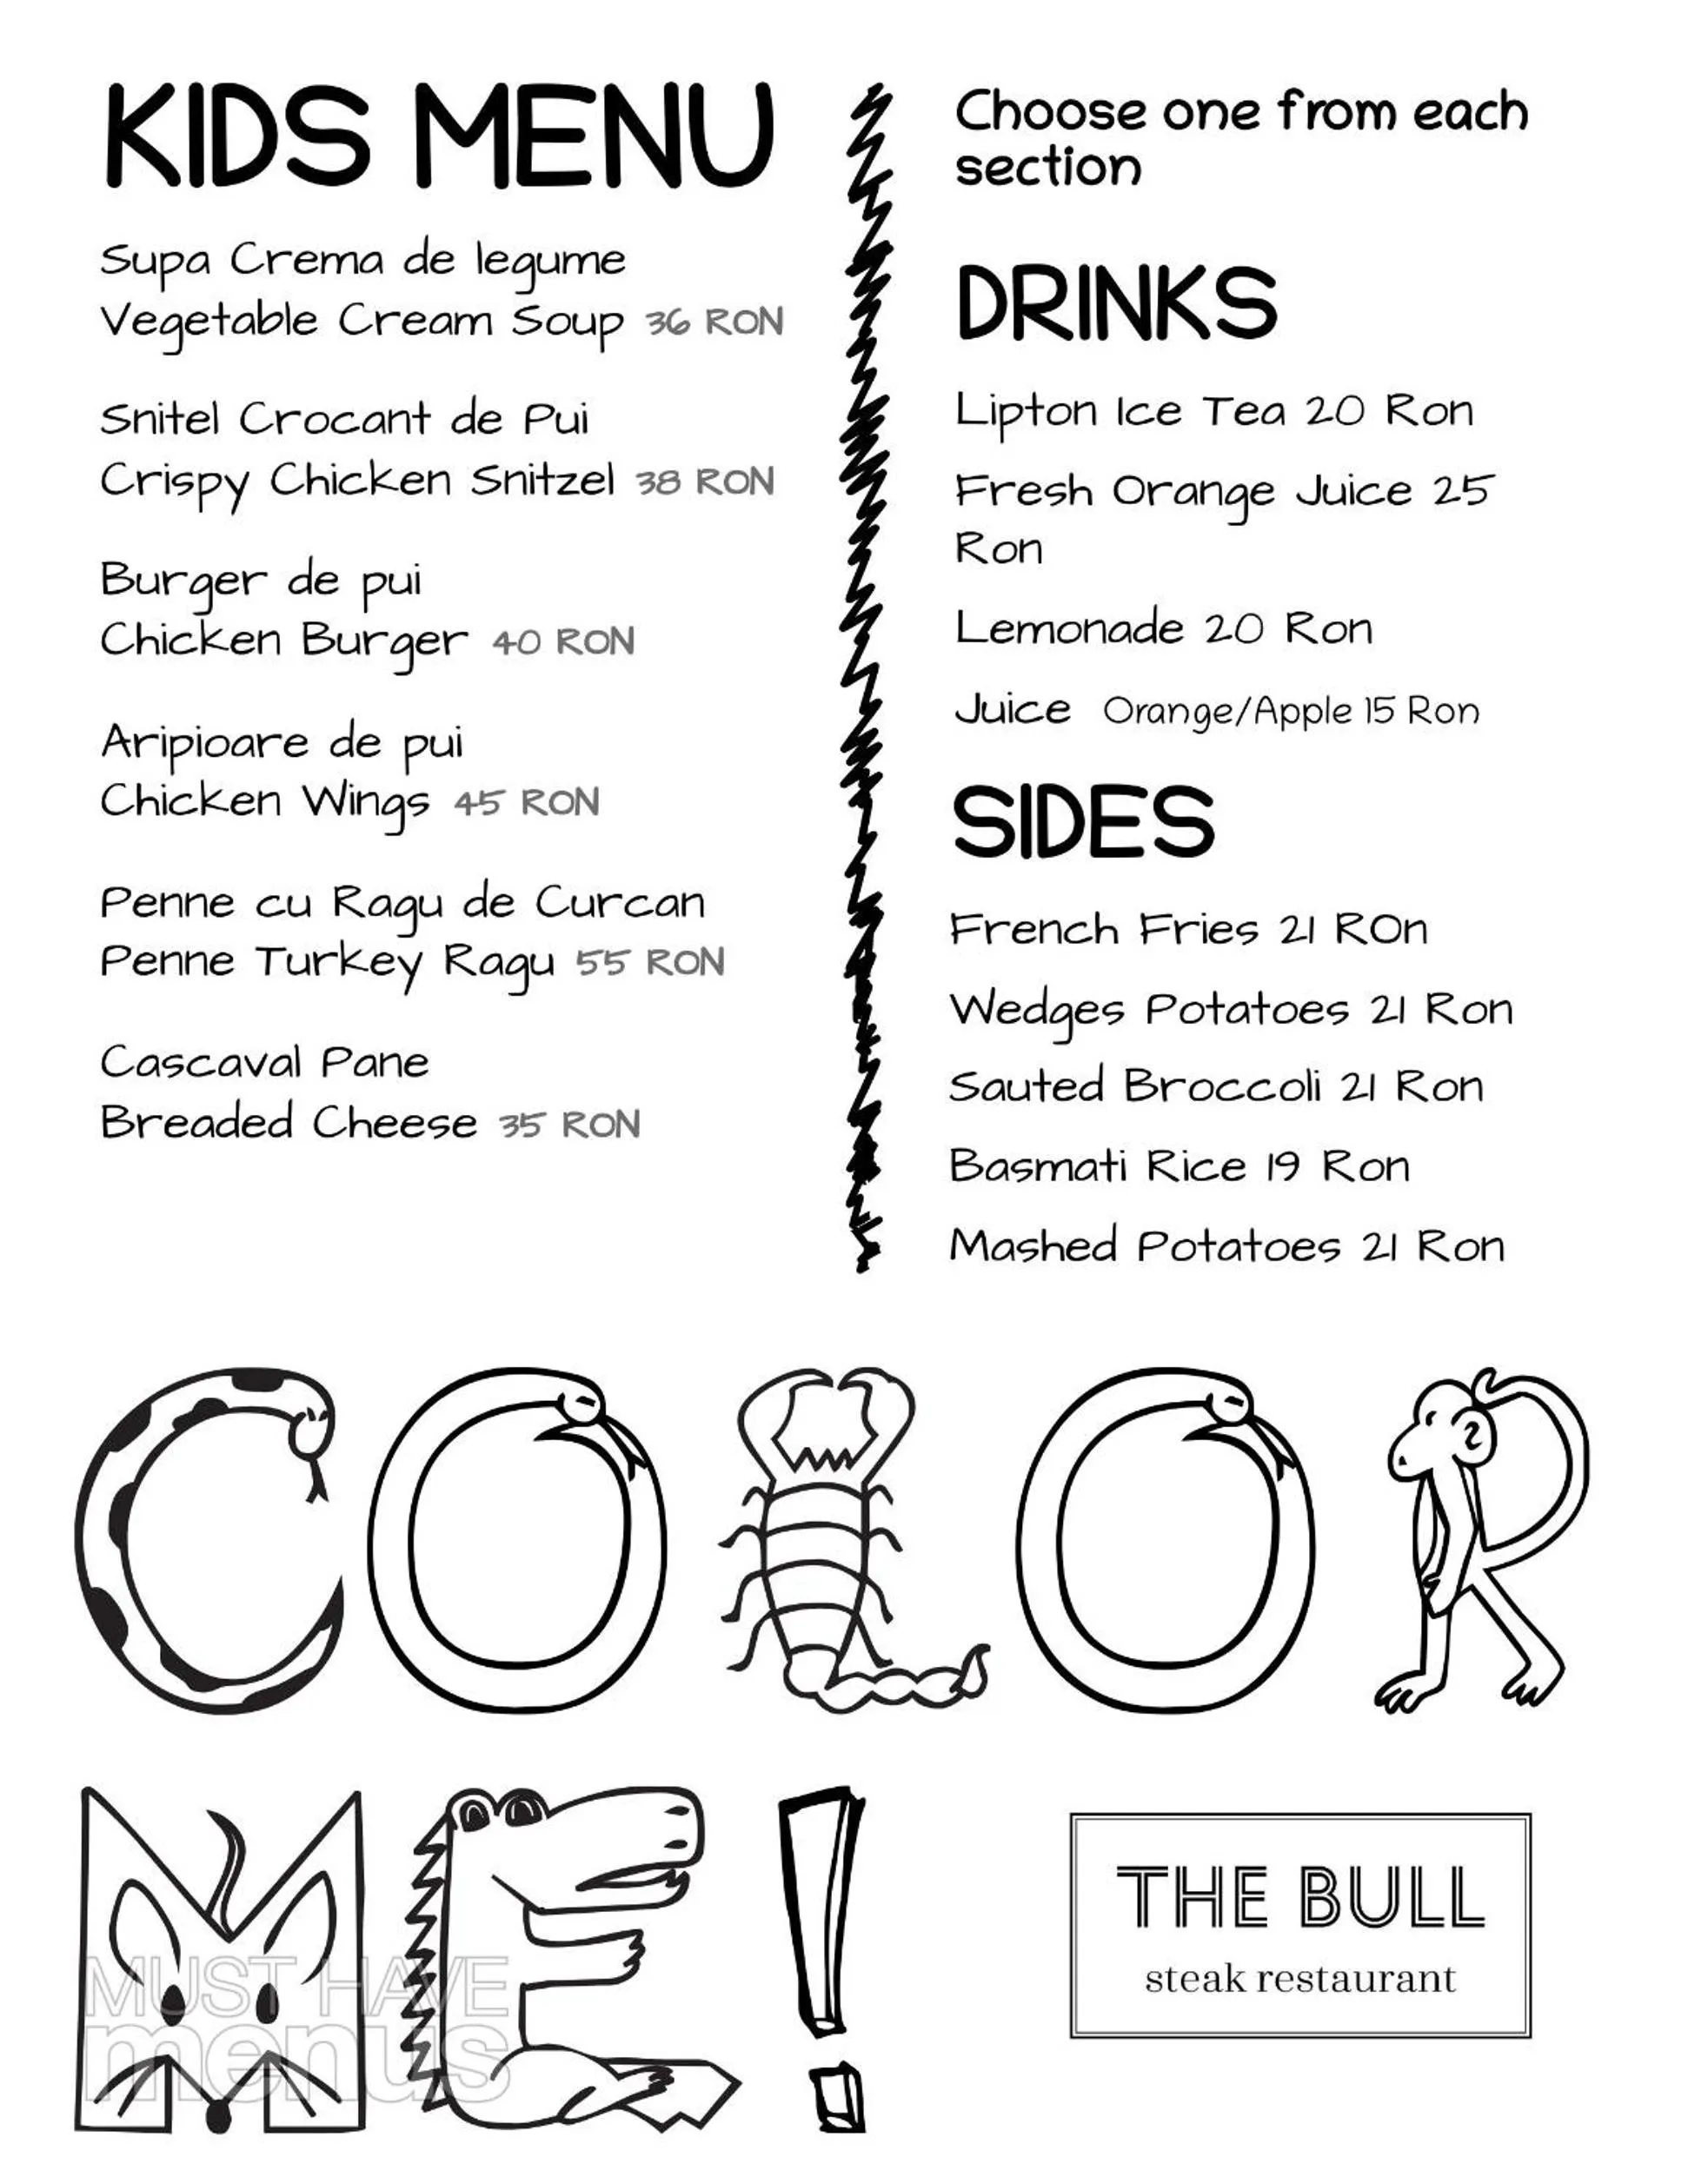 KIDS MENU
Supa Crema de legume
Vegetable Cream Soup 36 RON
Snitel Crocant de Pui
Crispy Chicken Snitzel 38 RON
Burger de pui
Chicken Burger 40 RON
Aripioare de pui
Chicken Wings 45 RON
Penne cu Ragu de Curcan
Penne Turkey Ragu 55 RON
Cascaval Pane
Breaded Cheese 35 RON
Choose one from each
section
DRINKS
Lipton Ice Tea 20 Ron
Fresh Orange Juice 25
Ron
Lemonade 20 Ron
Juice Orange/Apple 15 Ron
SIDES
French Fries 21 ROn
Wedges Potatoes 21 Ron
Sauted Broccoli 21 Ron
Basmati Rice 19 Ron
Mashed Potatoes 21 Ron
COLOR
ME!
MUST HAVE
menus
THE BULL
steak restaurant